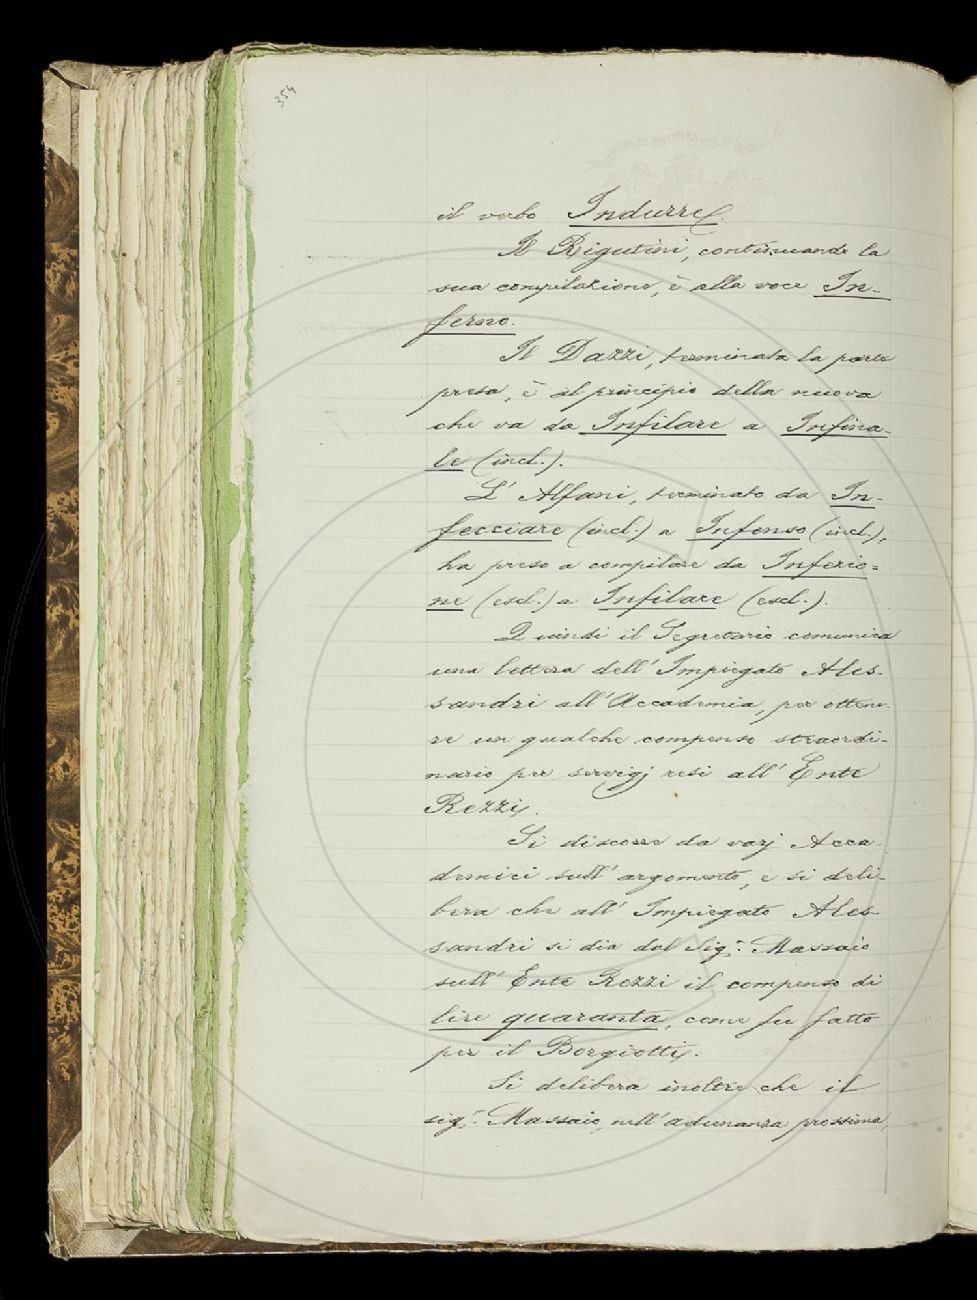 354
il verbo Indurre.
Il Rigutini, continuando la
sua compilazione, è alla voce In-
ferno.
Il Dazzi, terminata la parte
presa, è al principio della nuova
che va da Infilare a Infina-
le (incl.).
L' Alfani, terminato da In-
fecciare (incl.) a Infenso (incl.),
ha preso a compilare da Inferio-
ne (escl.) a Infilare (escl.).
Quindi il Segretario comunica
una lettera dell' Impiegato Ales-
sandri all' Accademia, per ottene-
re un qualche compenso straordi-
nario per servigj resi all' Ente
Rezzi.
Si discorre da varj Acca-
demici sull' argomento, e si deli-
bera che all' Impiegato Ales-
sandri si dia dal Sig.r Massaio
sull' Ente Rezzi il compenso di
lire quaranta, come fu fatto
per il Borgiotti.
Si delibera inoltre che il
sig.r Massaio, nell' adunanza prossima,